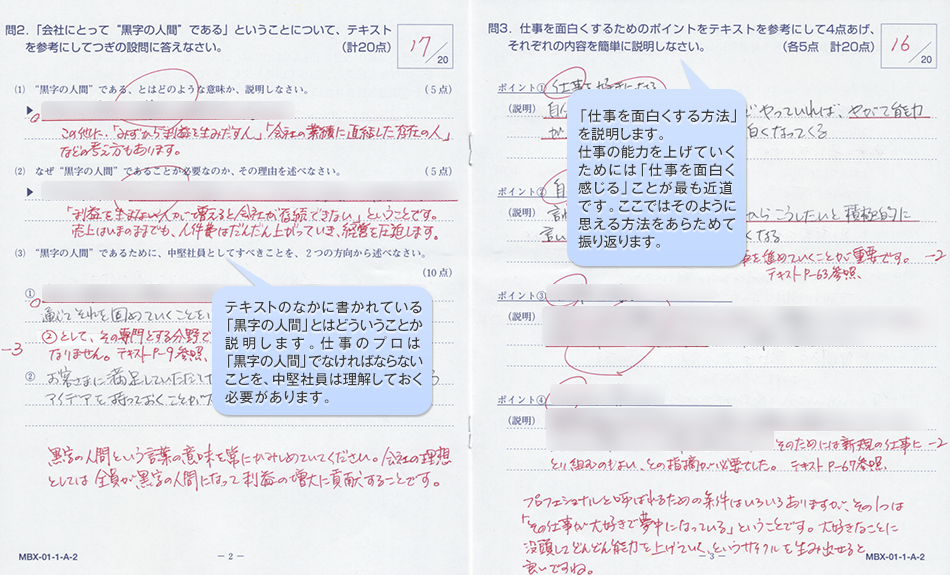 問2.「会社にとって“黒字の人間”である」ということについて、テキスト
を参考にしてつぎの設問に答えなさい。
(計20点)
17
/20
(1) “黒字の人間”である、とはどのような意味か、説明しなさい。
(5点)
この他に、「みずから利益を生みだす人」「会社の業績に直結した存在の人」
などの考え方もあります。
(2) なぜ“黒字の人間”であることが必要なのか、その理由を述べなさい。
(5点)
「利益を生まない人が増えると会社が存続できない」ということです。
売上はいまのままでも、人件費はだんだん上がっていき、経営を圧迫します。
(3) “黒字の人間”であるために、中堅社員としてすべきことを、2つの方向から述べなさい。
(10点)
①
通じてそれを固めていくことを
-3
②として、その専門とする分野で
なりません。テキストP-9参照、
② お客さまに満足していただけ
アイデアを持っておくことが
テキストのなかに書かれている
「黒字の人間」とはどういうことか
説明します。仕事のプロは
「黒字の人間」でなければならない
ことを、中堅社員は理解しておく
必要があります。
黒字の人間という言葉の意味を常にかみしめていてください。会社の理想
としては全員が黒字の人間になって利益の増大に貢献することです。
MBX-01-1-A-2
― 2 ―
問3. 仕事を面白くするためのポイントをテキストを参考にして4点あげ、
それぞれの内容を簡単に説明しなさい。
(各5点 計20点)
16
/20
ポイント① 仕事を好きになる
(説明) 自
どやっていれば、やがて能力
が
白くなってくる
「仕事を面白くする方法」
を説明します。
仕事の能力を上げていく
ためには「仕事を面白く
感じる」ことが最も近道
です。ここではそのように
思える方法をあらためて
振り返ります。
ポイント② 自
(説明)
からこうしたいと積極的に
くなる
を集めていくことが重要です。 -2
テキストP-63参照.
ポイント③
(説明)
ポイント④
(説明)
そのためには新規の仕事に -2
とり組むのもよい、との指摘が必要でした。 テキストP-67参照.
プロフェショナルと呼ばれるための条件はいろいろありますが、その1つは
「その仕事が大好きで夢中になっている」ということです。大好きなことに
没頭してどんどん能力を上げていく、というサイクルを生み出せると
良いですね。
― 3 ―
MBX-01-1-A-2